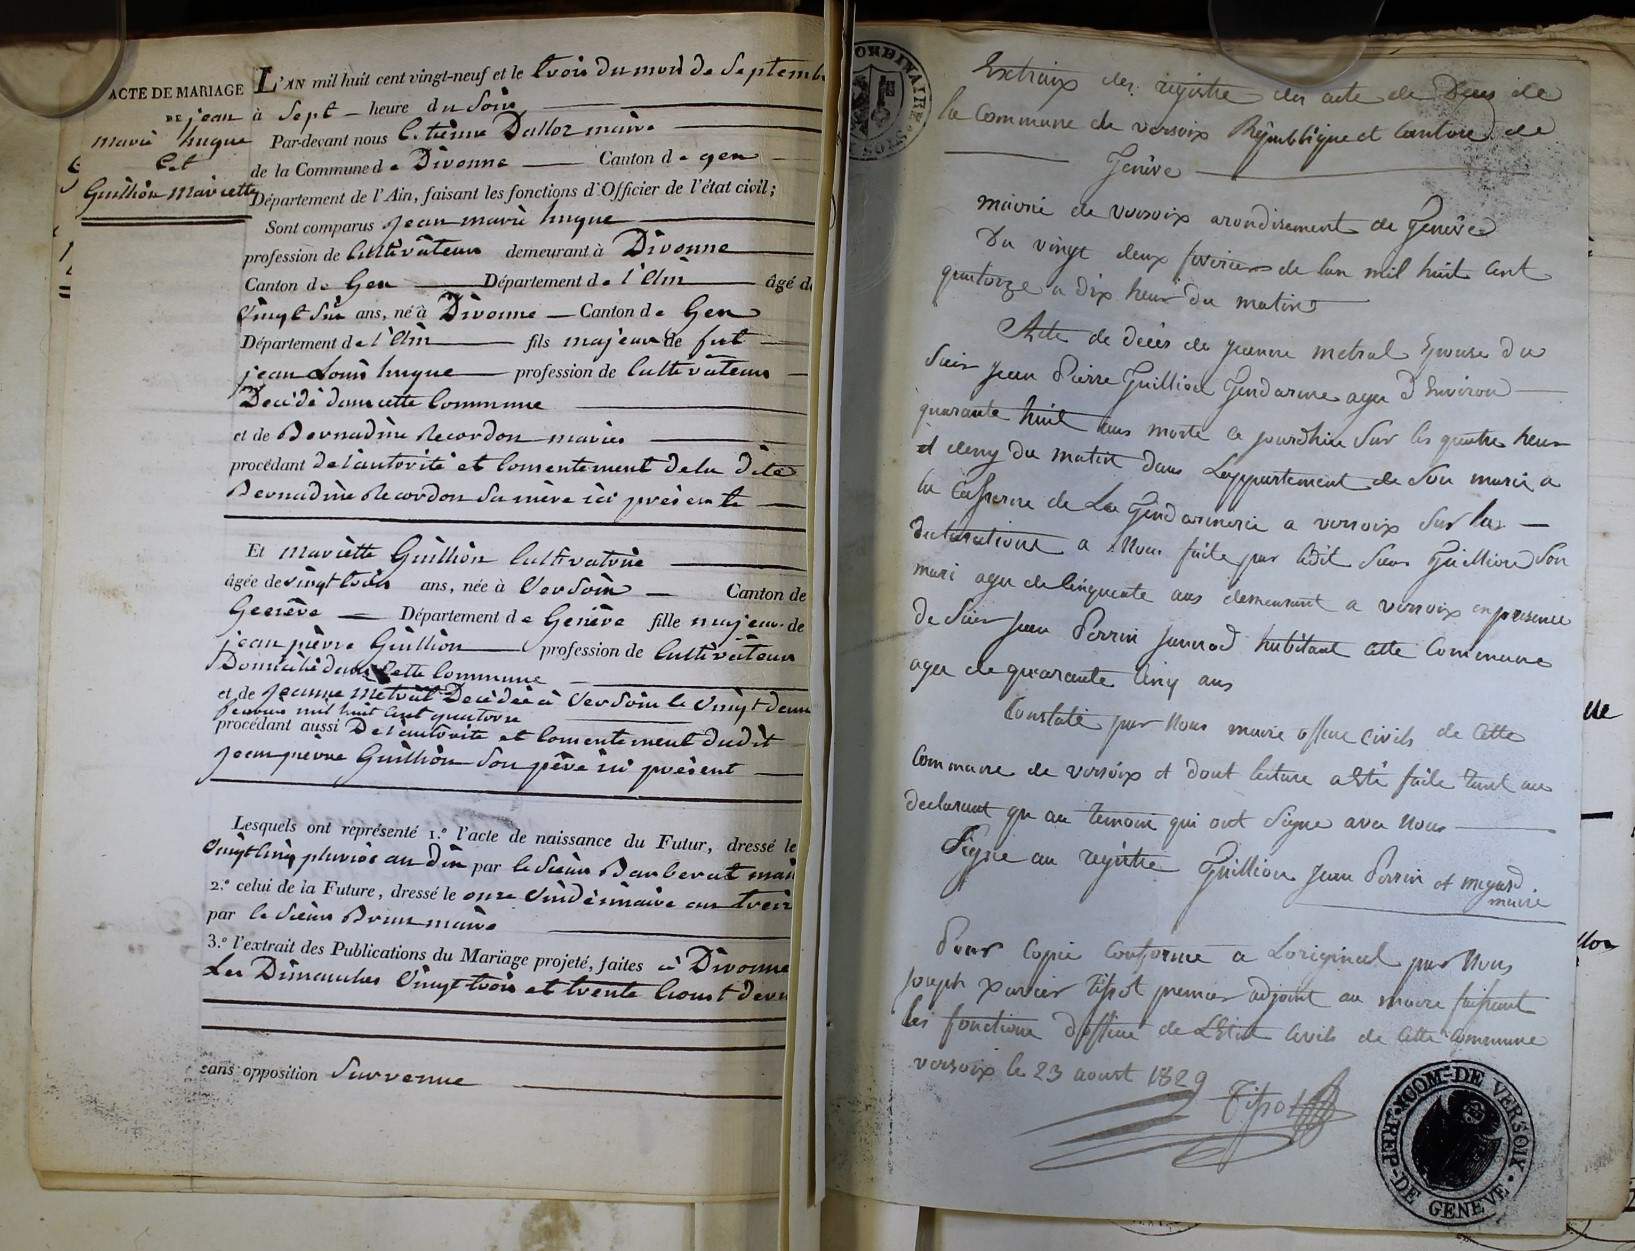 ACTE DE MARIAGE
DE jean
marie hugue
Et
Guillion mariette
L'AN mil huit cent vingt-neuf et le trois du mois de Septemb
à Sept heure du Soir
Par-devant nous Etienne Dalloz maire
de la Commune de Divonne Canton de gex
Département de l'Ain, faisant les fonctions d'Officier de l'état civil;
Sont comparus jean marie hugue
profession de Cultivateur demeurant à Divonne
Canton de Gex Département de l'Ain âgé d
Vingt Six ans, né à Divonne Canton de Gex
Département de l'Ain fils majeur de fut
jean Louis hugue profession de Cultivateur
Decédé dans cette Commune
et de Bernadine Recordon mariés
procédant de l'autorité et Consentement de la dite
Bernadine Recordon Sa mère ici présente
Et mariette Guillion Cultivatrice
âgée de vingt trois ans, née à Versoix Canton de
Genève Département de Genève fille majeur de
jean pierre Guillion profession de Cultivateur
Domicilié dans Cette Commune
et de jeanne metral Decédée à Versoix le Vingt deux
fevrier mil huit cent quatorze
procédant aussi De l'autorité et Consentement dudit
jean pierre Guillion Son père ici présent
Lesquels ont représenté 1.º l'acte de naissance du Futur, dressé le
Vingt Cinq pluviose an Dix par le Sieur Barberat mair
2.º celui de la Future, dressé le onze Vindémiaire an treiz
par le Sieur Brun maire
3.º l'extrait des Publications du Mariage projeté, faites à Divonne
Les Dimanches Vingt trois et trente Aoust der
sans opposition Survenue
ORDINAIRE
Extraix des registre des acte de Deces de
la Commune de versoix République et Canton de
Genève
mairie de versoix arondisement de Genève
Du vingt deux fevrier de lan mil huit Cent
quatorze a dix heur du matin
Acte de décès de jeanne metral Epouse du
Sieur Jean Pierre Guillion Gendarme agee D Environ
quarante huit ans morte ce jourdhui Sur les quatre heur
et demy du matin dans Lappartement de Son mari a
la Caserne de La Gendarmerie a versoix Sur la
declaration a Nous faite par ledit Sieur Guillion Son
mari age de Cinquente ans demeurant a versoix en presence
de Sieur Jean Perrin Junnod habitant cette Commune
age de quarante Cinq ans
Constaté par Nous maire officie civils de Cette
Commune de versoix et dont lecture a Eté faite tant au
declarant qu au temoin qui ont Signe avec Nous
Signe au registre Guillion Jean Perrin et megard
maire
Pour Copie Conforme a Loriginal par Nous
Joseph Xavier Tissot premier adjoint au maire faissant
les fonction d'officie de L'Etat Civils de Cette Commune
versoix le 23 aoust 1829
Tissot
COM-DE VERSOIX
REP-DE GENEVE